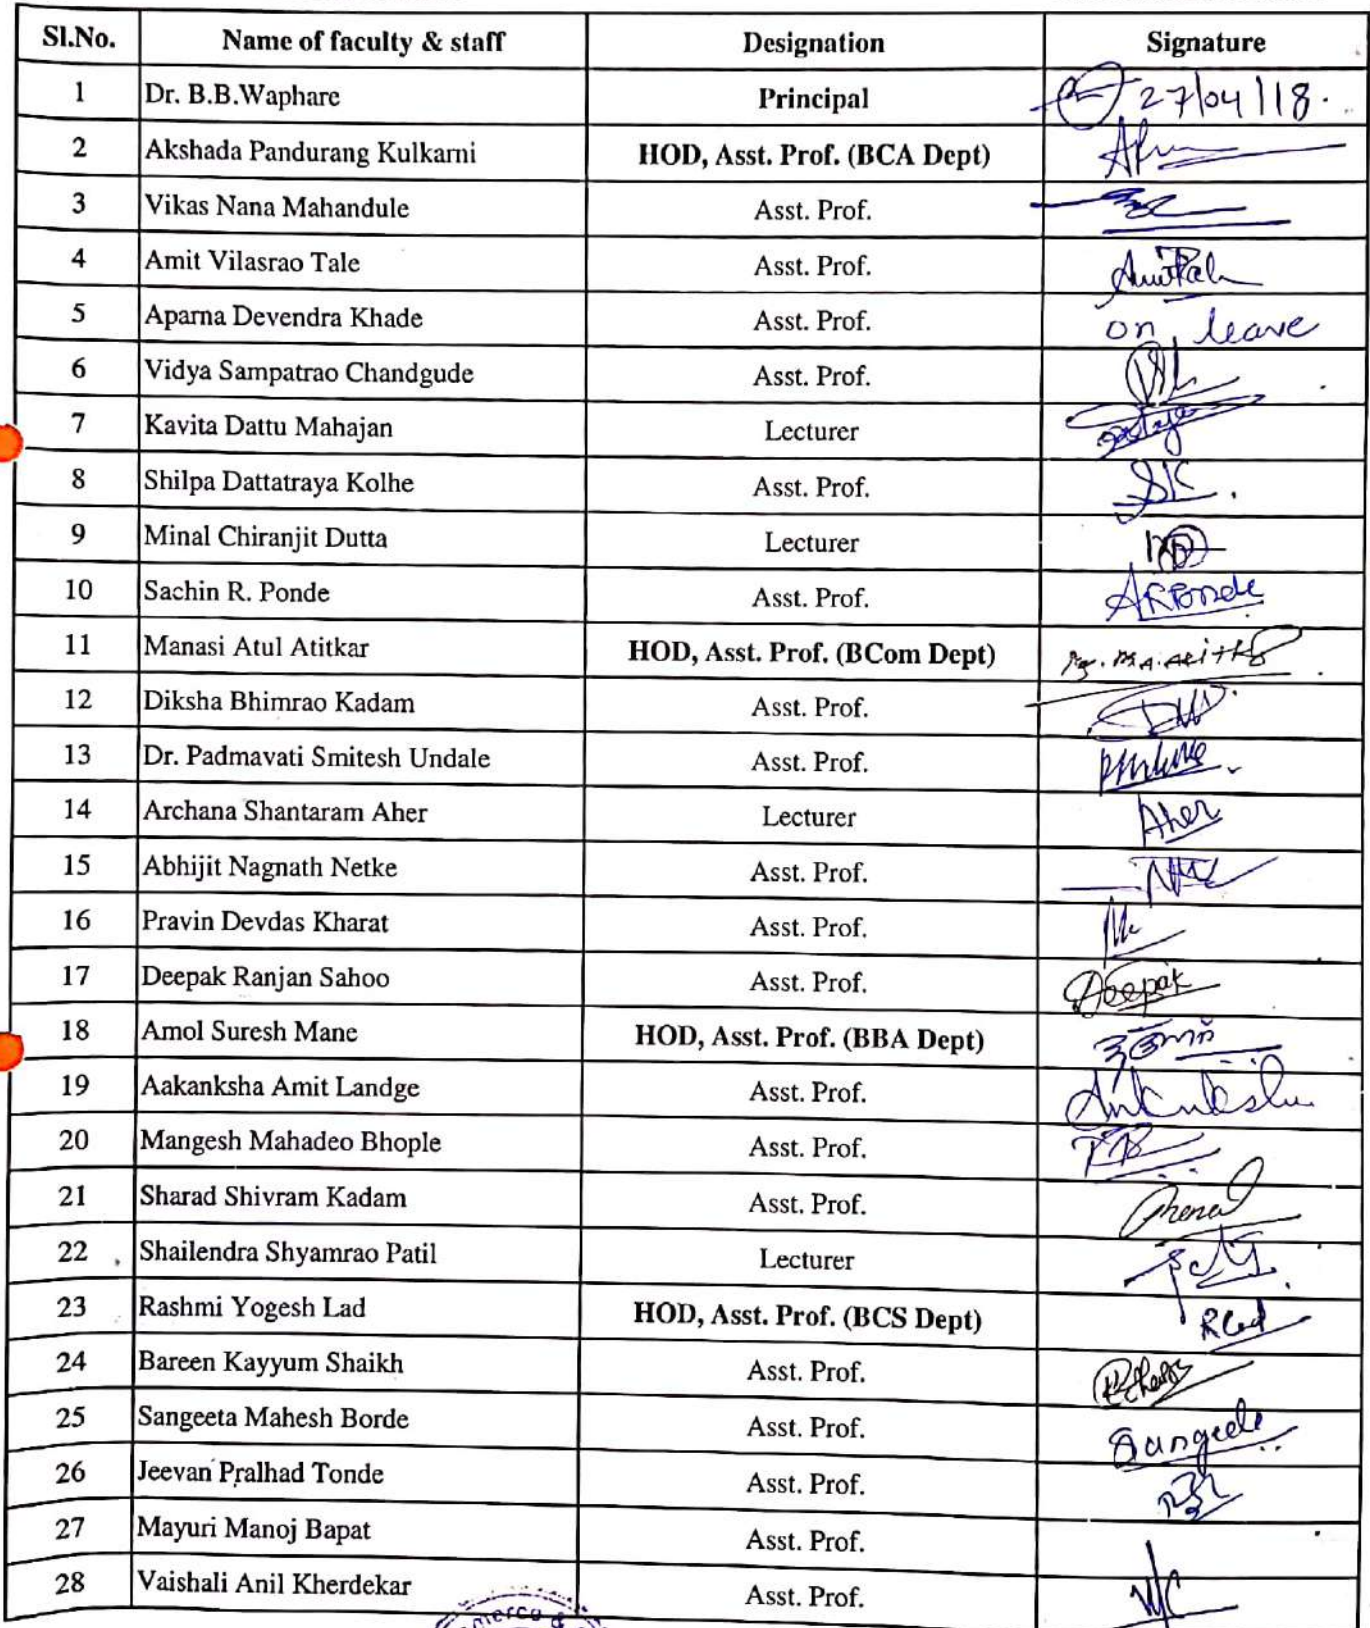 Sl.No. Name of faculty & staff Designation Signature
1 Dr. B.B.Waphare Principal 27/04/18.
2 Akshada Pandurang Kulkarni HOD, Asst. Prof. (BCA Dept)
3 Vikas Nana Mahandule Asst. Prof.
4 Amit Vilasrao Tale Asst. Prof.
5 Aparna Devendra Khade Asst. Prof. on leave
6 Vidya Sampatrao Chandgude Asst. Prof.
7 Kavita Dattu Mahajan Lecturer
8 Shilpa Dattatraya Kolhe Asst. Prof. SK.
9 Minal Chiranjit Dutta Lecturer
10 Sachin R. Ponde Asst. Prof.
11 Manasi Atul Atitkar HOD, Asst. Prof. (BCom Dept)
12 Diksha Bhimrao Kadam Asst. Prof.
13 Dr. Padmavati Smitesh Undale Asst. Prof.
14 Archana Shantaram Aher Lecturer Aher
15 Abhijit Nagnath Netke Asst. Prof.
16 Pravin Devdas Kharat Asst. Prof.
17 Deepak Ranjan Sahoo Asst. Prof. Deepak
18 Amol Suresh Mane HOD, Asst. Prof. (BBA Dept)
19 Aakanksha Amit Landge Asst. Prof.
20 Mangesh Mahadeo Bhople Asst. Prof.
21 Sharad Shivram Kadam Asst. Prof.
22 Shailendra Shyamrao Patil Lecturer
23 Rashmi Yogesh Lad HOD, Asst. Prof. (BCS Dept)
24 Bareen Kayyum Shaikh Asst. Prof.
25 Sangeeta Mahesh Borde Asst. Prof.
26 Jeevan Pralhad Tonde Asst. Prof.
27 Mayuri Manoj Bapat Asst. Prof.
28 Vaishali Anil Kherdekar Asst. Prof.